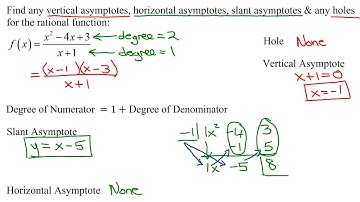 Find any vertical asymptotes, horizontal asymptotes, slant asymptotes & any holes
for the rational function:
f(x) = (x² - 4x + 3)/(x + 1) ← degree = 2 ← degree = 1
= ((x - 1)(x - 3))/(x + 1)
Hole None
Vertical Asymptote
x + 1 = 0
x = -1
Degree of Numerator = 1 + Degree of Denominator
Slant Asymptote
y = x - 5
-1 | 1x² -4 3
-1 5
1x -5 8
Horizontal Asymptote None